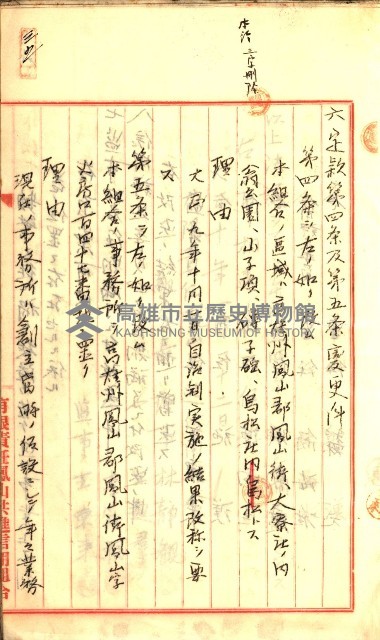 本行三字刪除
六、定款第四條及第五條變更ノ件
第四條ヲ左ノ如ク
本組合ノ區域ハ高雄州鳳山郡鳳山街、大寮庄ノ內
翁公園、山子頂、磚子磘、鳥松庄ノ內鳥松トス
理由
大正九年十月一日自治制實施ノ結果改稱ヲ要
ス
第五條ヲ左ノ如ク
本組合ノ事務所ハ高雄州鳳山郡鳳山街鳳山字
百四十七番地ニ置ク
理由
現在ノ事務所ハ創立當時ノ假設
年々業務
高雄市立歷史博物館
KAOHSIUNG MUSEUM OF HISTORY
有限責任鳳山共進信用組合